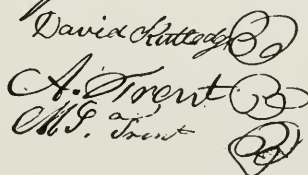 David Rutledge
A. Trent
M. Trent